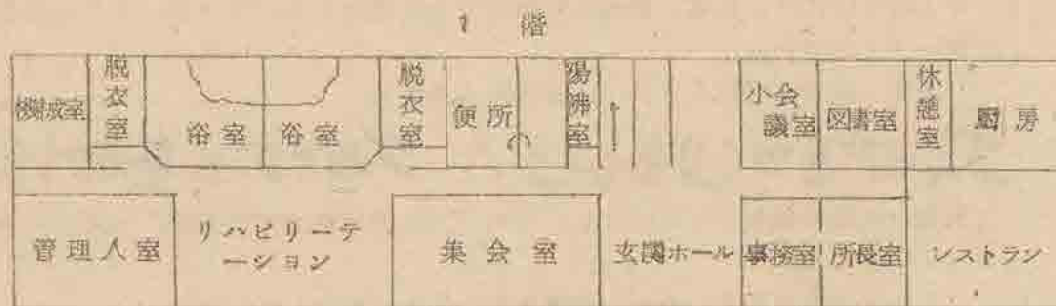 1 階
機械室
脱衣室
浴室
浴室
脱衣室
便所
湯沸室
小会
議室
図書室
休憩室
厨房
管理人室
リハビリーテ
ーション
集会室
玄関ホール
事務室
所長室
レストラン